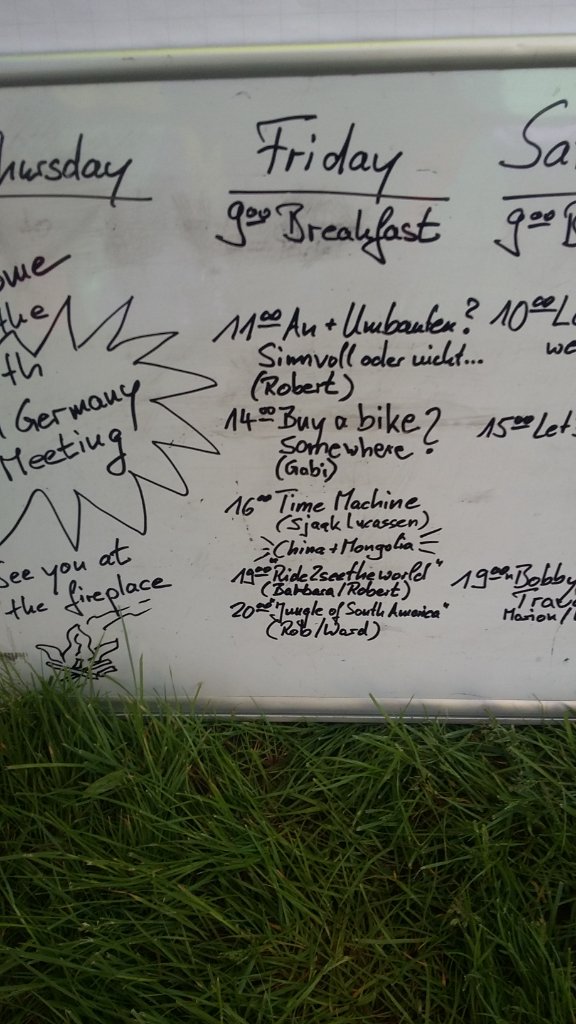 hursday
ome
the
th
Germany
Meeting
See you at
the fireplace
Friday
9⁰⁰ Breakfast
11⁰⁰ An + Umbauten?
Sinnvoll oder nicht...
(Robert)
14⁰⁰ Buy a bike?
Somewhere?
(Gabi)
16⁰⁰ Time Machine
(Sjaak Lucassen)
China + Mongolia
19⁰⁰ "Ride2seetheworld"
(Barbara/Robert)
20⁰⁰ "Jungle of South America"
(Rob/Ward)
Sa
9⁰⁰ B
10⁰⁰ Le
we
15⁰⁰ Let
19⁰⁰ Bobby
Trave
Marion/